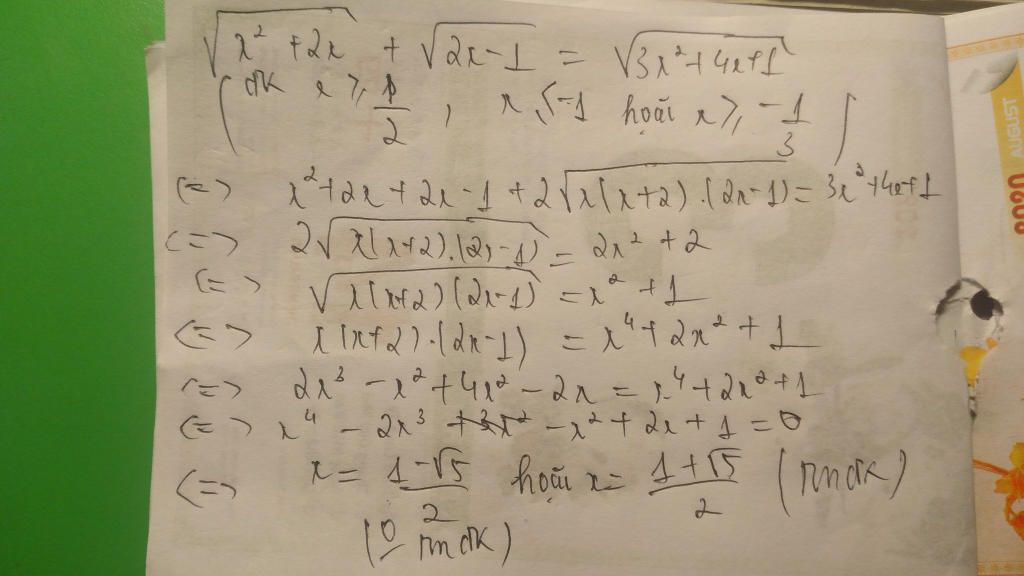 √(x² + 2x) + √(2x - 1) = √(3x² + 4x + 1)
(đk x ≥ 1/2 , x ≤ -1 hoặc x ≥ -1/3)
<=> x² + 2x + 2x - 1 + 2√(x(x+2).(2x-1)) = 3x² + 4x + 1
<=> 2√(x(x+2).(2x-1)) = 2x² + 2
<=> √(x(x+2)(2x-1)) = x² + 1
<=> x(x+2).(2x-1) = x⁴ + 2x² + 1
<=> 2x³ - x² + 4x² - 2x = x⁴ + 2x² + 1
<=> x⁴ - 2x³ - x² + 2x + 1 = 0
<=> x = (1 - √5)/2 hoặc x = (1 + √5)/2 (tmđk)
(0 tmđk)
2020 AUGUST